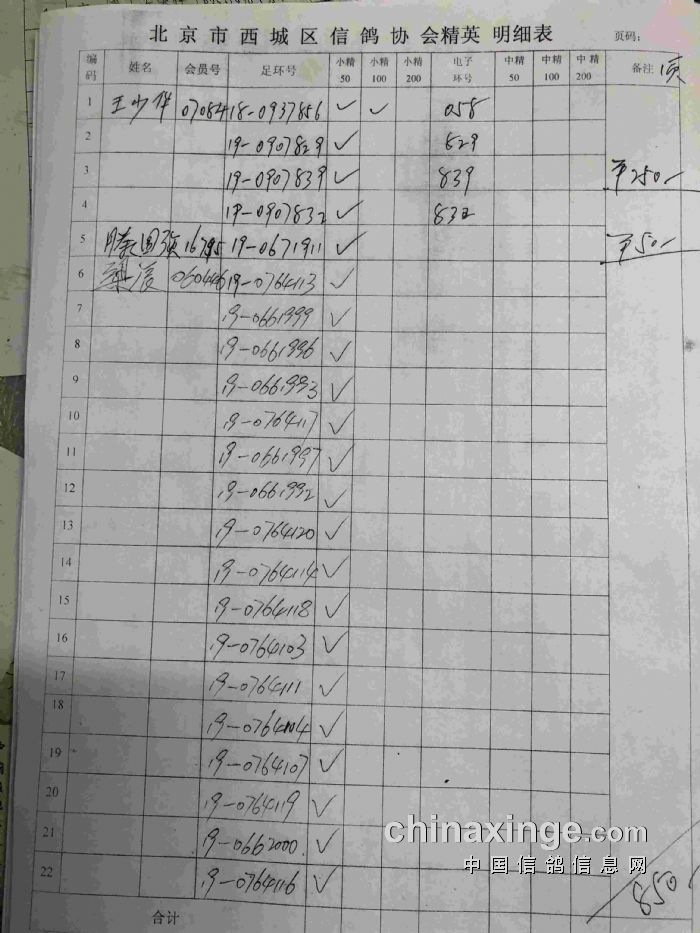 北京市西城区信鸽协会精英 明细表 页码:
编码 姓名 会员号 足环号 小精50 小精100 小精200 电子环号 中精50 中精100 中精200 备注
1 王少伴 07084 18-0937856 ✓ ✓ 058
2 19-0907829 ✓ 829
3 19-0907839 ✓ 839 ¥250/
4 19-0907832 ✓ 832
5 滕国强 16795 19-0671911 ✓ ¥50/
6 060446 19-0764113 ✓
7 19-0661999 ✓
8 19-0661996 ✓
9 19-0661993 ✓
10 19-0764117 ✓
11 19-0661997 ✓
12 19-0661992 ✓
13 19-0764120 ✓
14 19-0764114 ✓
15 19-0764118 ✓
16 19-0764103 ✓
17 19-0764111 ✓
18 19-0764104 ✓
19 19-0764107 ✓
20 19-0764119 ✓
21 19-0662000 ✓
22 19-0764116 ✓
850/
合计
chinaxinge.com
中国信鸽信息网